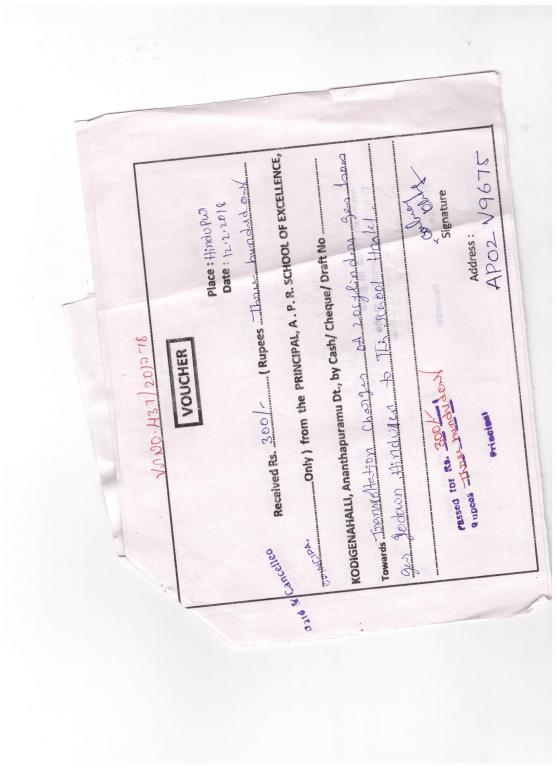 V.NO.D.437/2017-18
VOUCHER
Place : Hindupur
Date : 12.2.2018
Received Rs. 300/- ( Rupees Three hundred only
Only ) from the PRINCIPAL, A . P . R. SCHOOL OF EXCELLENCE,
KODIGENAHALLI, Ananthapuramu Dt., by Cash/ Cheque/ Draft No
Towards Transportation Charges of cylinders gas from
gas godown Hindupur to The school Hostel
Paid & Cancelled
PRINCIPAL
Signature
Passed for Rs. 300/-
Rupees Three hundred only
Principal
Address :
AP02 V9675